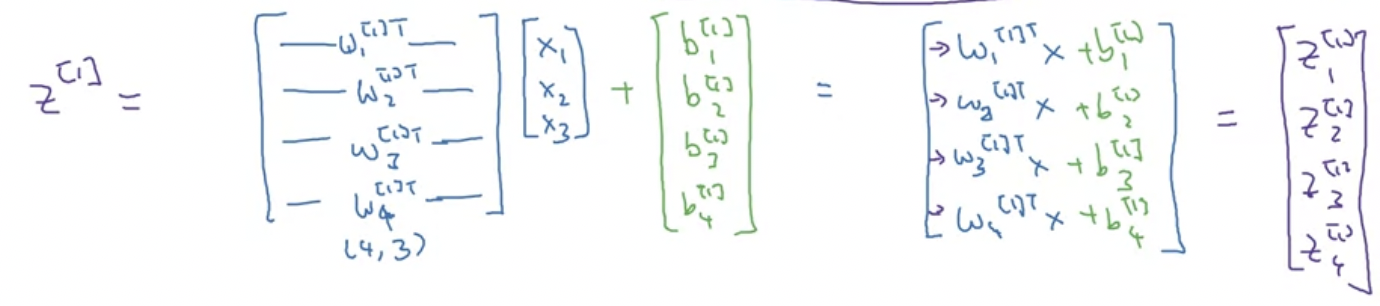 z^{[1]} = [ — w_1^{[1]T} — ; — w_2^{[1]T} — ; — w_3^{[1]T} — ; — w_4^{[1]T} — ] [ x_1 ; x_2 ; x_3 ] + [ b_1^{[1]} ; b_2^{[1]} ; b_3^{[1]} ; b_4^{[1]} ] = [ → w_1^{[1]T} x + b_1^{[1]} ; → w_2^{[1]T} x + b_2^{[1]} ; → w_3^{[1]T} x + b_3^{[1]} ; → w_4^{[1]T} x + b_4^{[1]} ] = [ z_1^{[1]} ; z_2^{[1]} ; z_3^{[1]} ; z_4^{[1]} ]
(4,3)